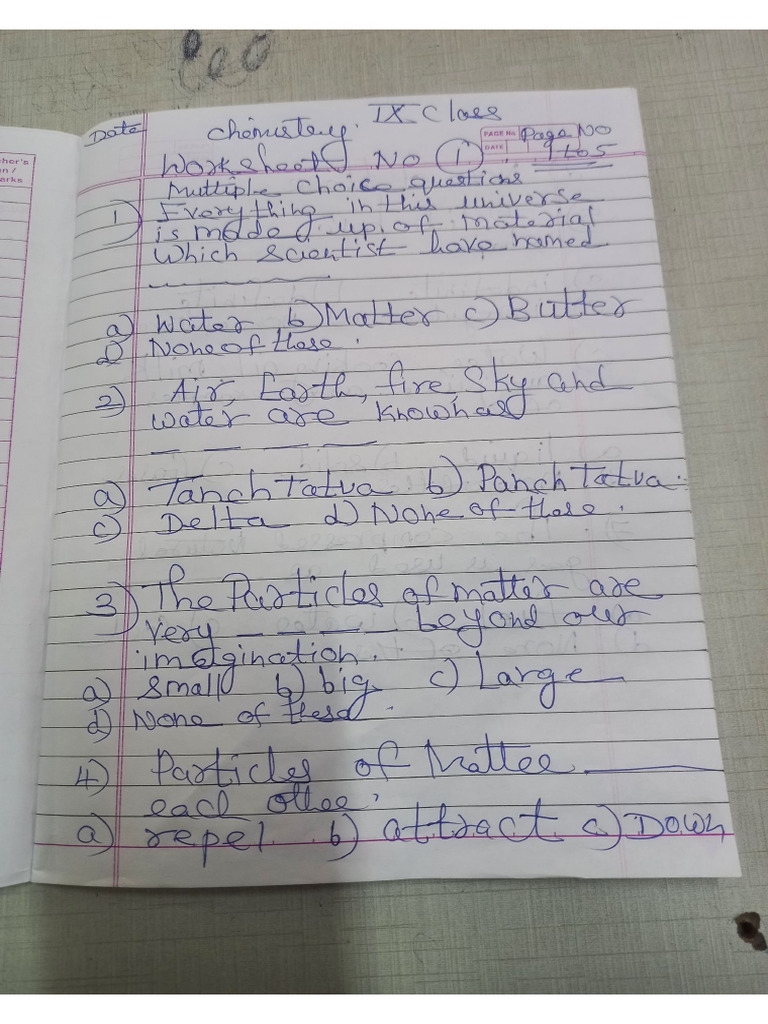 Date
Chemistry. IX Class
PAGE No
DATE
Page No
1 to 5
Worksheet No 1.
Multiple choice questions
1) Everything in this universe
is made up of material
which scientist have named
a) Water b) Matter c) Butter
D None of these.
2) Air, Earth, fire, Sky and
water are known as
a) Tanch Tatva b) Panch Tatva.
c) Delta d) None of these.
3) The Particles of matter are
very _ _ _ _ beyond our
imagination.
a) small b) big c) Large
d) None of these.
4) Particles of Matter ____
each other.
a) repel. b) attract c) Down